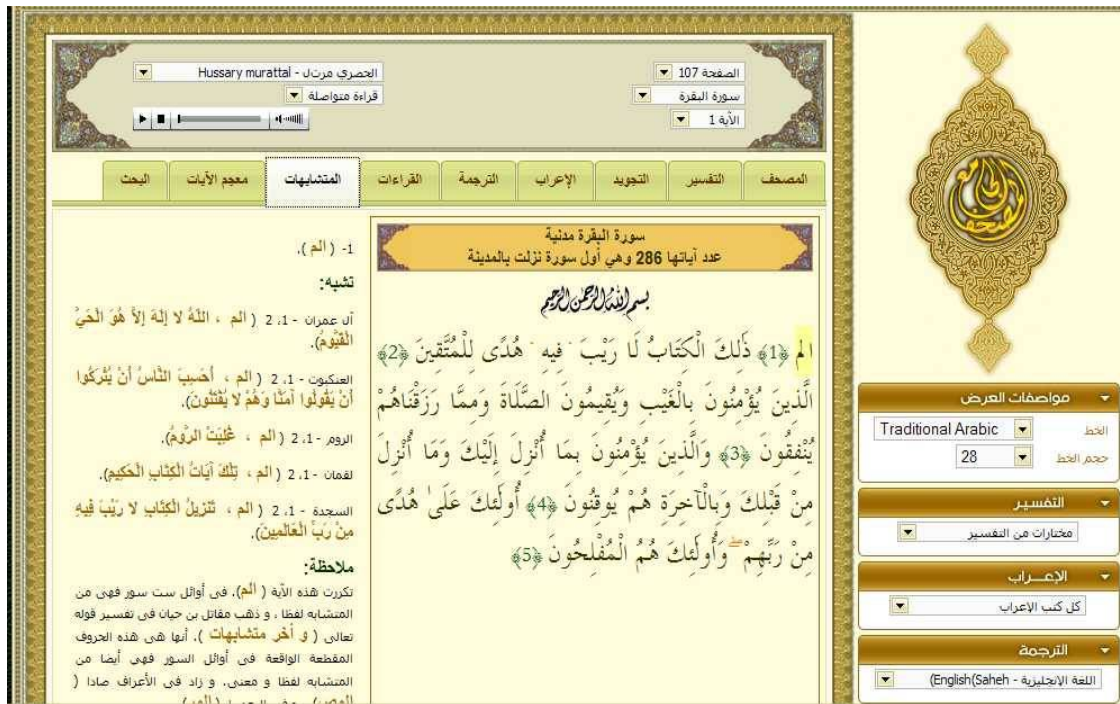 الصفحة 107
الحصري مرتل - Hussary murattal
سورة البقرة
قراءة متواصلة
الآية 1
المصحف
التفسير
التجويد
الإعراب
الترجمة
القراءات
المتشابهات
معجم الآيات
البحث
سورة البقرة مدنية
عدد آياتها 286 وهي أول سورة نزلت بالمدينة
بسم الله الرحمن الرحيم
الم ﴿1﴾ ذَٰلِكَ الْكِتَابُ لَا رَيْبَ ۛ فِيهِ ۛ هُدًى لِلْمُتَّقِينَ ﴿2﴾
الَّذِينَ يُؤْمِنُونَ بِالْغَيْبِ وَيُقِيمُونَ الصَّلَاةَ وَمِمَّا رَزَقْنَاهُمْ
يُنْفِقُونَ ﴿3﴾ وَالَّذِينَ يُؤْمِنُونَ بِمَا أُنْزِلَ إِلَيْكَ وَمَا أُنْزِلَ
مِنْ قَبْلِكَ وَبِالْآخِرَةِ هُمْ يُوقِنُونَ ﴿4﴾ أُولَٰئِكَ عَلَىٰ هُدًى
مِنْ رَبِّهِمْ ۖ وَأُولَٰئِكَ هُمُ الْمُفْلِحُونَ ﴿5﴾
1- ( الم ).
تشبه:
آل عمران - 1، 2 ( الم ، اللَّهُ لا إِلَهَ إِلاَّ هُوَ الْحَيُّ
الْقَيُّومُ).
العنكبوت - 1، 2 ( الم ، أَحَسِبَ النَّاسُ أَنْ يُتْرَكُوا
أَنْ يَقُولُوا آمَنَّا وَهُمْ لا يُفْتَنُونَ).
الروم - 1، 2 ( الم ، غُلِبَتْ الرُّومُ).
لقمان - 1، 2 ( الم ، تِلْكَ آيَاتُ الْكِتَابِ الْحَكِيمِ).
السجدة - 1، 2 ( الم ، تَنْزِيلُ الْكِتَابِ لا رَيْبَ فِيهِ
مِنْ رَبِّ الْعَالَمِينَ).
ملاحظة:
تكررت هذه الآية ( الم)، فى أوائل ست سور فهى من
المتشابه لفظا ، و ذهب مقاتل بن حيان فى تفسير قوله
تعالى ( و أخر متشابهات )، أنها هى هذه الحروف
المقطعة الواقعة فى أوائل السور فهى أيضا من
المتشابه لفظا و معنى، و زاد فى الأعراف صادا (
مصحف الجامع
مواصفات العرض
الخط
Traditional Arabic
حجم الخط
28
التفسير
مختارات من التفسير
الإعــراب
كل كتب الإعراب
الترجمة
اللغة الإنجليزية - English(Saheh)